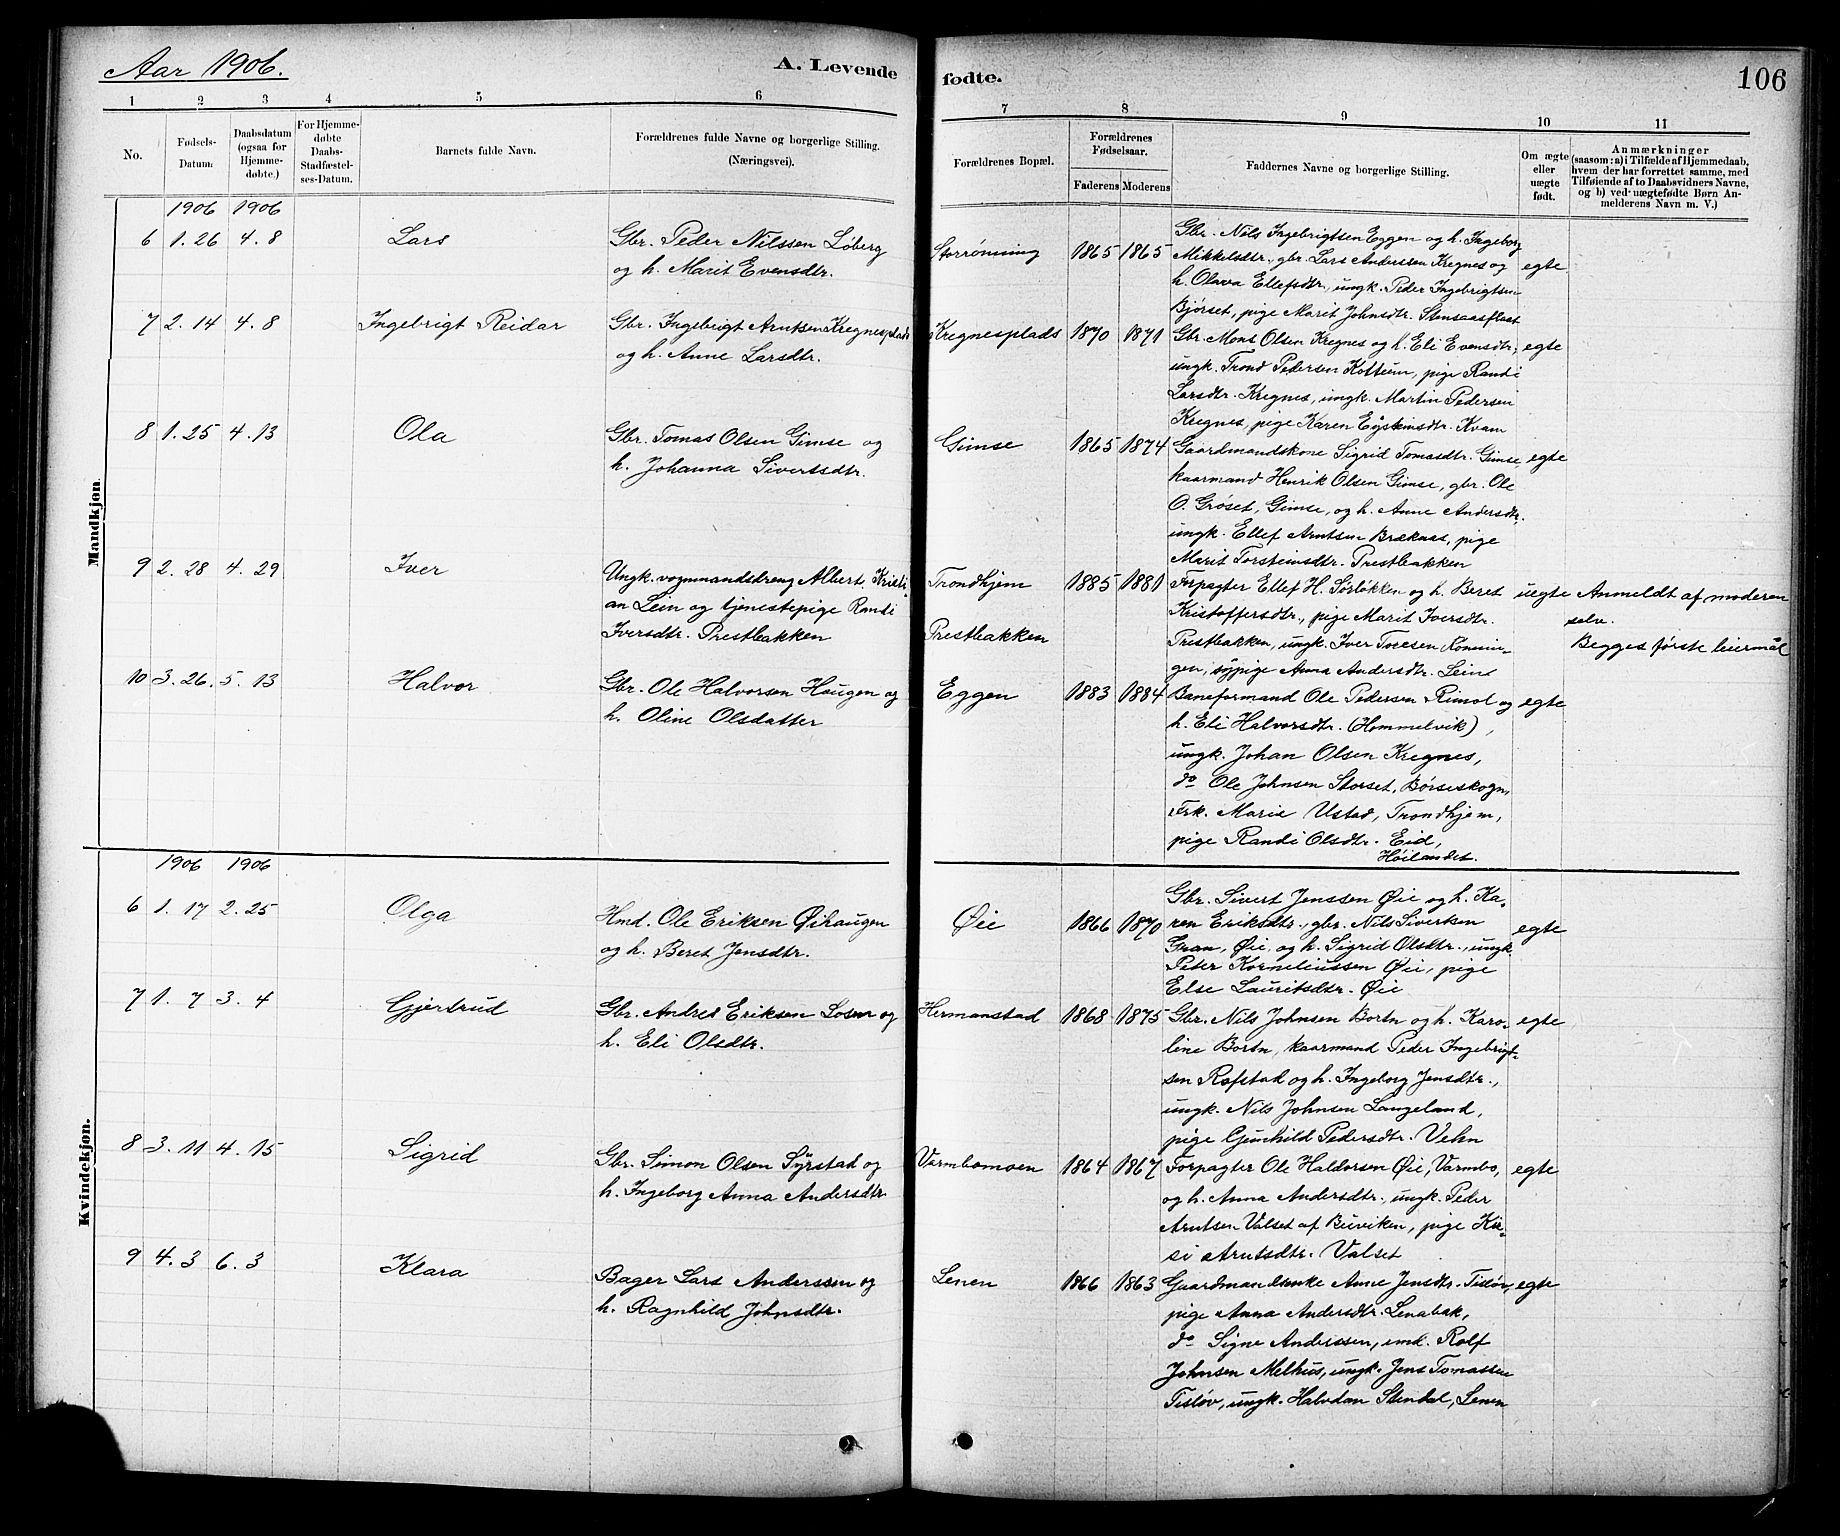 Aar 1906.
A. Levende fødte.
106
1 2 3 4 5 6 7 8 9 10 11
No.
Fødsels-Datum.
Daabsdatum (ogsaa for Hjemme-døbte.)
For Hjemme-døbte Daabs-Stadfæstel-ses-Datum.
Barnets fulde Navn.
Forældrenes fulde Navne og borgerlige Stilling. (Næringsvei).
Forældrenes Bopæl.
Forældrenes Fødselsaar.
Faderens Moderens
Faddernes Navne og borgerlige Stilling.
Om ægte eller uægte født.
Anmærkninger
(saasom: a) i Tilfælde af Hjemmedaab,
hvem der har forrettet samme, med
Tilføiende af to Daabsvidners Navne,
og b) ved uægtefødte Børn An-
melderens Navn m. V.)
Mandkjøn.
1906 1906
6 1.26 4.8 Lars
Gbr. Peder Nilssen Løberg
og h. Marit Evensdtr.
Storrønning 1865 1865
Gbr. Nils Ingebrigtsen Eggen og h. Ingeborg
Mikkelsdtr., gbr. Lars Anderssen Kregnes og
h. Olava Ellefsdtr., ungk. Peder Ingebrigtsen
Bjørset, pige Marit Johnsdtr. Stensaasflaat
egte
7 2.14 4.8 Ingebrigt Reidar
Gbr. Ingebrigt Arntsen Kregnesplads
og h. Anne Larsdtr.
Kregnesplads 1870 1871
Gbr. Mons Olsen Kregnes og h. Eli Evensdtr.,
ungk. Trond Pedersen Kottum, pige Randi
Larsdtr. Kregnes, ungk. Martin Pedersen
Kregnes, pige Karen Eystensdtr. Kvam
egte
8 1.25 4.13 Ola
Gbr. Tomas Olsen Gimse og
h. Johanna Sivertsdtr.
Gimse 1865 1874
Gaardmandskone Sigrid Tomasdtr. Gimse,
kaarmand Henrik Olsen Gimse, gbr. Ole
O. Grøset, Gimse, og h. Anne Andersdtr.
ungk. Ellef Arntsen Brækaas, pige
Marit Torsteinsdtr. Prestbakken
egte
9 2.28 4.29 Iver
Ungk. vognmandsdreng Albert Kristi-
an Lein og tjenestepige Randi
Iversdtr. Prestbakken
Trondhjem
Prestbakken
1885 1881
Forpagter Ellef H. Sørløkken og h. Beret
Kristoffersdtr., pige Marit Iversdtr.
Prestbakken, ungk. Iver Toresen
gen, sypige Anna Andersdtr. Lein
uegte
Anmeldt af moderen
selv.
Begges første leiermål
10 3.26 5.13 Halvor
Gbr. Ole Halvorsen Haugen og
h. Oline Olsdatter
Eggen 1883 1884
Baneformand Ole Pedersen Rimol og
h. Eli Halvorsdtr. (Hommelvik),
ungk. Johan Olsen Kregnes,
do Ole Johnsen Storset, Børseskogn,
Frk. Marie Ustad, Trondhjem,
pige Randi Olsdtr. Eid,
Høilandet.
egte
Kvindekjøn.
1906 1906
6 1.17 2.25 Olga
Hmd. Ole Eriksen Øihaugen
og h. Beret Jensdtr.
Øie 1866 1870
Gbr. Sivert Jenssen Øie og h. Ka-
ren Eriksdtr., gbr. Nils Sivertsen
Gran, Øie, og h. Sigrid Olsdtr., ungk.
Peter Korneliussen Øie, pige
Else Lauritsdtr. Øie
egte
7 1.7 3.4 Gjertrud
Gbr. Andres Eriksen Losen og
h. Eli Olsdtr.
Hermanstad 1868 1875
Gbr. Nils Johnsen Bortn og h. Karo-
line Bortn, kaarmand Peder Ingebrigt-
sen Rofstad og h. Ingeborg Jensdtr.,
ungk. Nils Johnsen Langeland,
pige Gunhild Pedersdtr. Vehn
egte
8 3.11 4.15 Sigrid
Gbr. Simon Olsen Syrstad og
h. Ingeborg Anna Andersdtr.
Varmbomoen 1864 1867
Forpagter Ole Haldorsen Øie, Varmbo,
og h. Anna Andersdtr., ungk. Peder
Arntsen Valset af Buviken, pige Kir-
si Arntsdtr. Valset
egte
9 4.3 6.3 Klara
Bager Lars Anderssen og
h. Ragnhild Johnsdtr.
Lenen 1866 1863
Gaardmandsenke Anne Jensdtr. Tisløv,
pige Anna Andersdtr. Lenabak,
do Signe Anderssen, smd. Rolf
Johnsen Melhus, ungk. Jens Tomassen
Tisløv, ungk. Halvdan Stendal, Lenen
egte